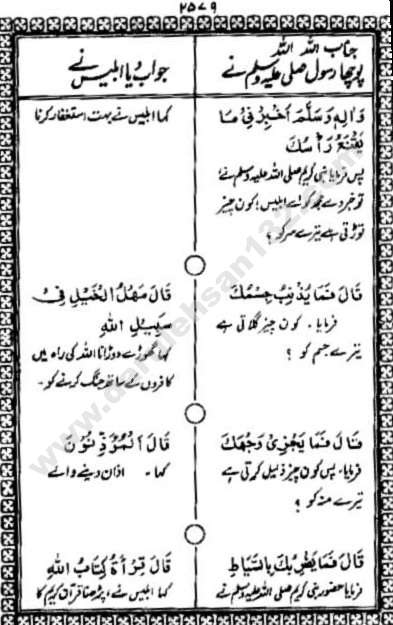 ۲۵۷۹
جناب اللہ اللہ
پوچھا رسول صلی علیہ وسلم نے
جواب دیا ابلیس نے
وَاٰلِهٖ وَسَلَّمَ اَخْبِرْنِیْ مَا
رَأْسَكَ
پس فرمایا نبی کریم صلی اللہ علیہ وسلم نے
تو خبر دے مجھ کو اے ابلیس! کون چیز
توڑتی ہے تیرے سر کو ؟
کہا ابلیس نے بہت استغفار کرنا
قَالَ فَمَا يُذْنِبُ جِسْمَكَ
فرمایا۔ کون چیز گلاتی ہے
تیرے جسم کو ؟
قَالَ صَهْلُ الْخَيْلِ فِيْ
سَبِيْلِ اللهِ
کہا گھوڑے دوڑانا اللہ کی راہ میں
کافروں کے ساتھ جنگ کرنے کو۔
قَالَ فَمَا يَخْزِیْ وَجْهَكَ
فرمایا۔ پس کون چیز ذلیل کرتی ہے
تیرے منہ کو ؟
قَالَ اَلْمُؤَذِّنُوْنَ
کہا۔ اذان دینے والے
قَالَ فَمَا يَضْرِبُكَ بِالسِّيَاطِ
فرمایا حضور نبی کریم صلی اللہ علیہ وسلم نے
قَالَ قِرَأَةُ كِتَابِ اللهِ
کہا ابلیس نے، پڑھنا قرآن کریم کا